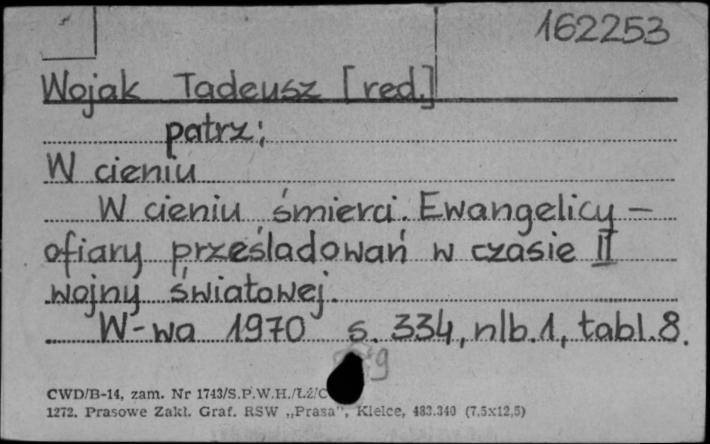 162253
Wojak Tadeusz [red.]
patrz;
W cieniu
W cieniu śmierci. Ewangelicy –
ofiary prześladowań w czasie II
wojny światowej.
W-wa 1970 s. 334, nlb.1, tabl.8.
CWD/B-14, zam. Nr 1743/S.P.W.H./Łź/C
1272. Prasowe Zakł. Graf. RSW „Prasa", Kielce, 483.340 (7,5x12,5)